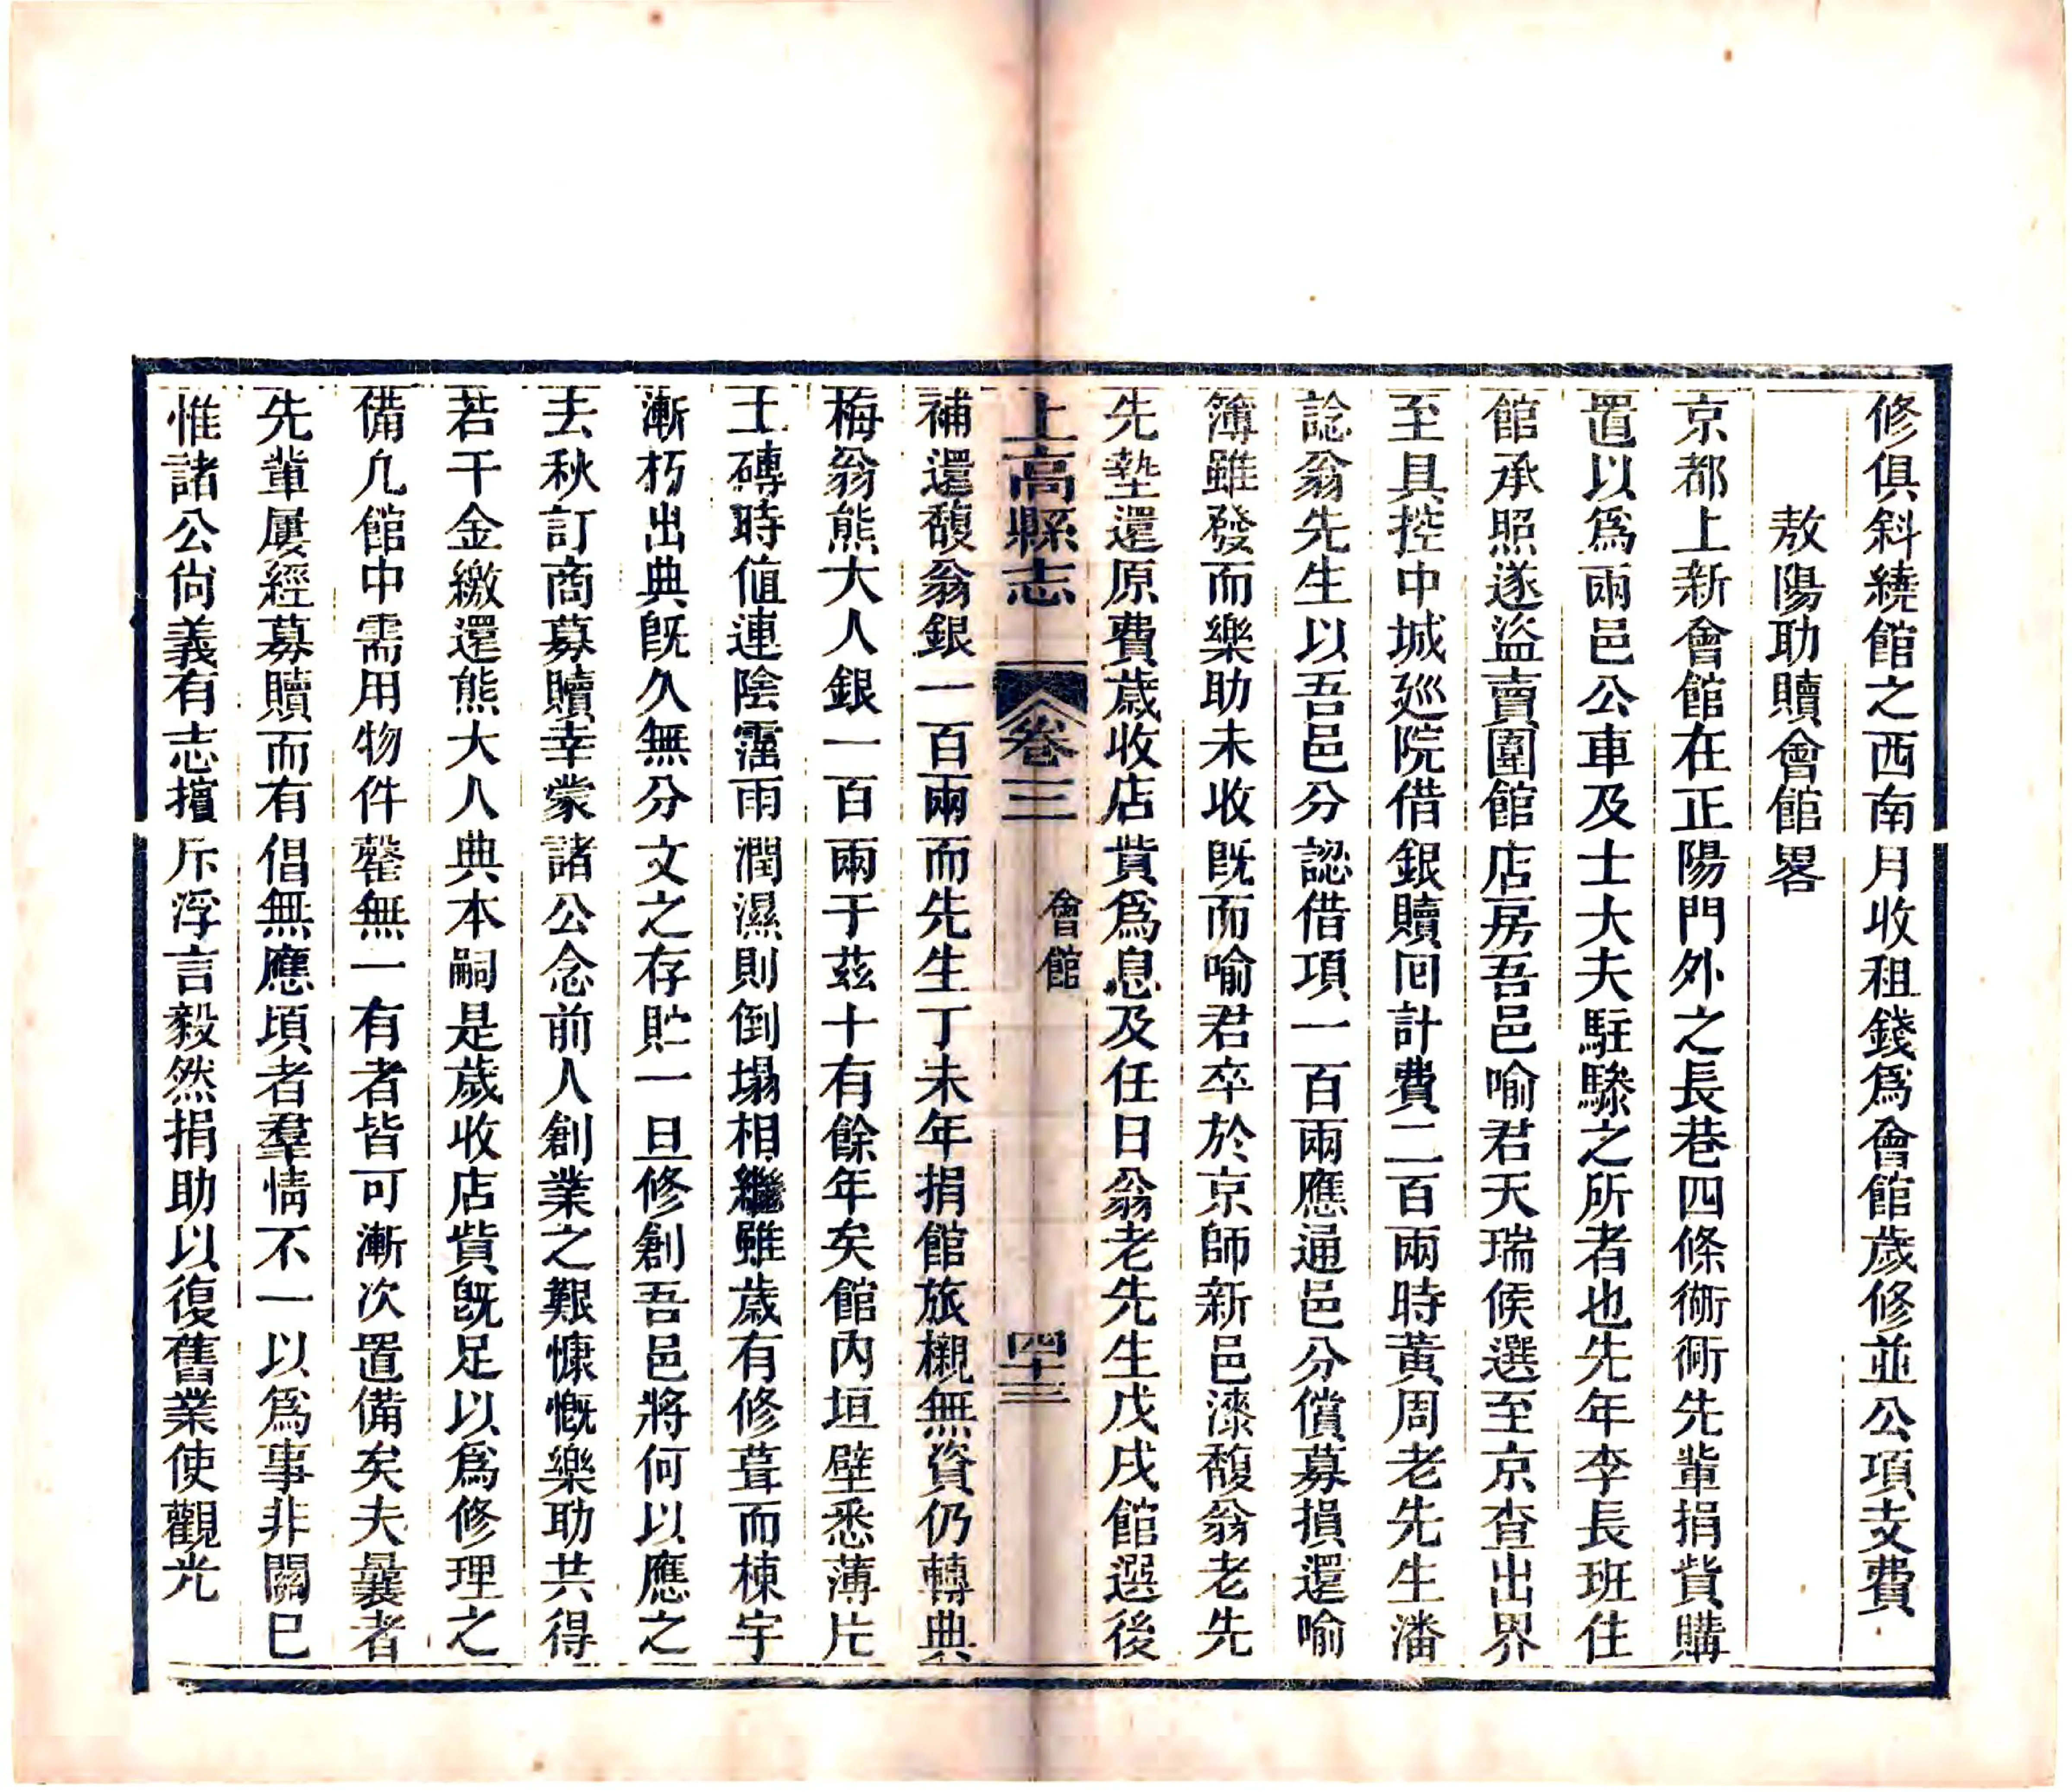 修俱斜繞館之西南月收租錢爲會館歲修並公項支費
敖陽助贖會館畧
京都上新會館在正陽門外之長巷四條衚衕先輩捐貲購
置以爲兩邑公車及士大夫駐驂之所者也先年李長班住
館承照遂盜賣圍館店房吾邑喻君天瑞候選至京查出界
至具控中城廵院借銀贖囘計費二百兩時黃周老先生潘
諗翁先生以吾邑分認借項一百兩應通邑分償募損還喻
簿雖發而樂助未收旣而喻君卒於京師新邑漆馥翁老先
先墊還原費歲收店貲爲息及任日翁老先生戊戌館選後
上高縣志 卷三 會館 四十三
補還馥翁銀一百兩而先生丁未年捐館旅櫬無資仍轉典
梅翁熊大人銀一百兩于茲十有餘年矣館內垣壁悉薄片
土磚時値連陰霪雨潤濕則倒塌相繼雖歲有修葺而棟宇
漸朽出典旣久無分文之存貯一旦修創吾邑將何以應之
去秋訂商募贖幸蒙諸公念前人創業之艱慷慨樂助共得
若干金繳還熊大人典本嗣是歲收店貲旣足以爲修理之
備凢館中需用物件罄無一有者皆可漸次置備矣夫曩者
先輩屢經募贖而有倡無應頃者羣情不一以爲事非關已
惟諸公尙義有志擯斥浮言毅然捐助以復舊業使觀光